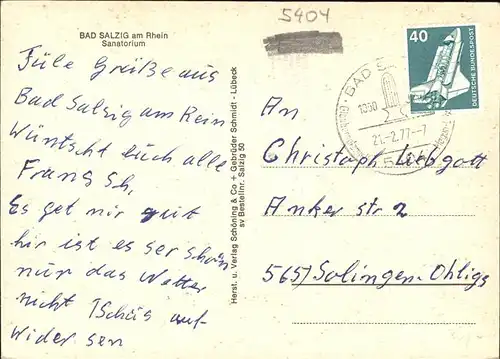 5404
BAD SALZIG am Rhein
Sanatorium
Füle Greüße aus
Bad Salzig am Rein
Wüntscht euch alle
Frang Sch,
Es get mir gut
hir ist es ser schön
nur das Wetter
nicht Tschüs auf-
wider sen
Herst. u. Verlag Schöning & Co + Gebrüder Schmidt - Lübeck
sv Bestellnr. Salzig 50
40
DEUTSCHE BUNDESPOST
BAD
1050
21.-2.77-7
An
Christoph Liebgott
Anker str 2
565) Solingen-Ohligs